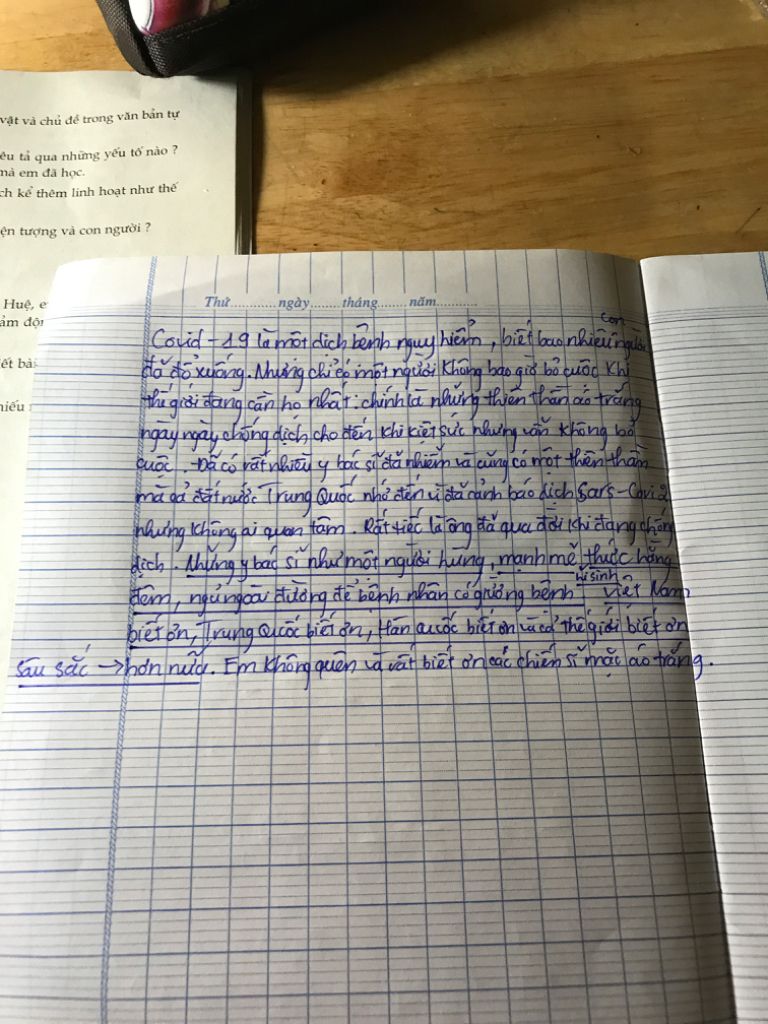 vật và chủ đề trong văn bản tự
êu tả qua những yếu tố nào ?
mà em đã học.
ch kể thêm linh hoạt như thế
ện tượng và con người ?
Huệ, e
ảm độ
ết bài
hiếu
Thứ............ngày........tháng........năm...........
con
Covid-19 là một dịch bệnh nguy hiểm, biết bao nhiêu người
đã đổ xuống. Nhưng chỉ có một người không bao giờ bỏ cuộc khi
thế giới đang cần họ nhất: chính là những thiên thần áo trắng
ngày ngày chống dịch cho đến khi kiệt sức nhưng vẫn không bỏ
cuộc. Đã có rất nhiều y bác sĩ đã nhiễm và cũng có một thiên thần
mà cả đất nước Trung Quốc nhớ đến vì đã cảnh báo dịch Sars-Covi 2
nhưng không ai quan tâm. Rất tiếc là ông đã qua đời khi đang chống
dịch. Những y bác sĩ như một người hùng, mạnh mẽ thức hằng
đêm, ngủ ngoài đường để bệnh nhân có giường bệnh hi sinh Việt Nam
biết ơn, Trung Quốc biết ơn, Hàn Quốc biết ơn và cả thế giới biết ơn
sâu sắc → hơn nữa. Em không quên và rất biết ơn các chiến sĩ mặc áo trắng.